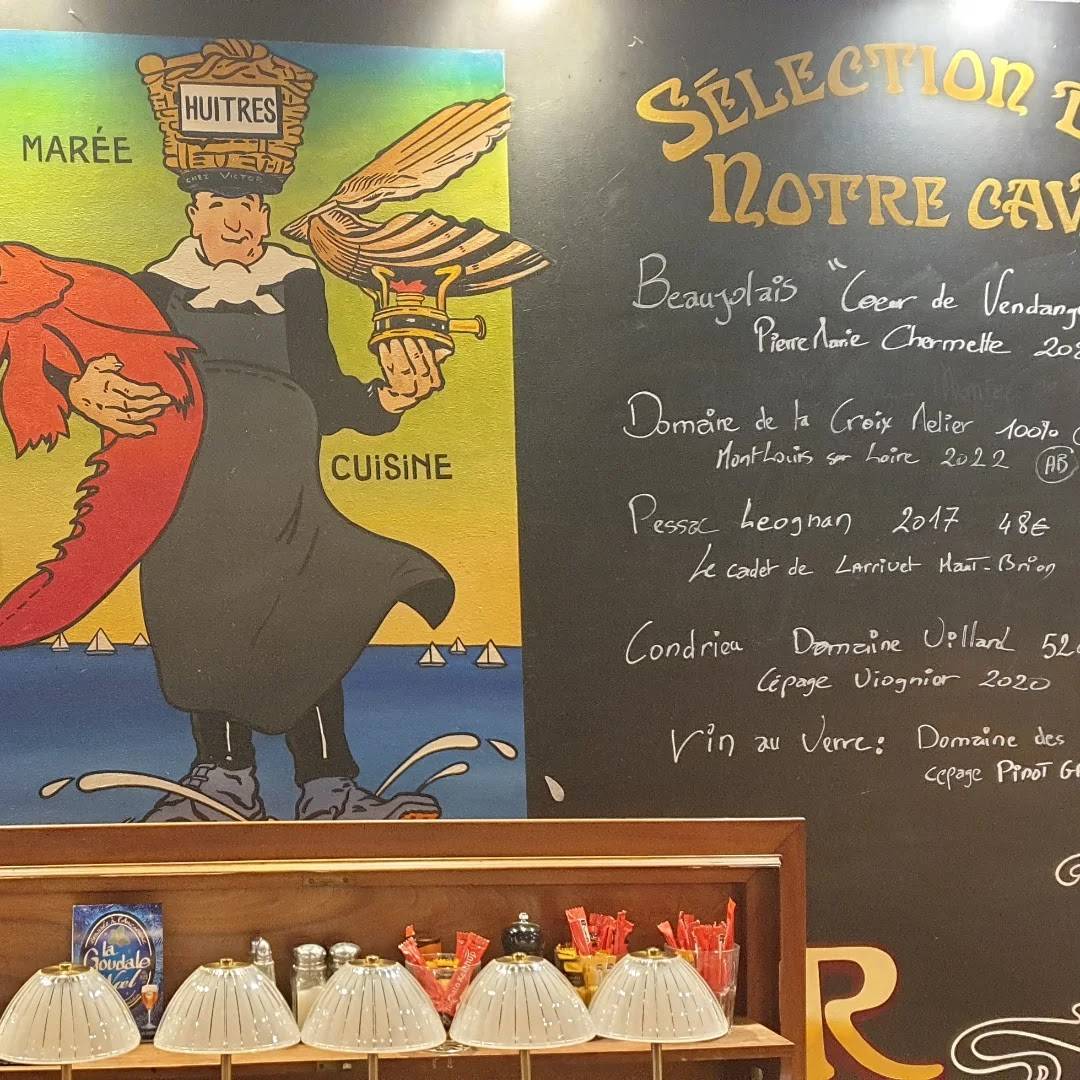 HUITRES
MARÉE
CHEZ VICTOR
CUISINE
SÉLECTION
NOTRE CAV
Beaujolais "Coeur de Vendang
Pierre Marie Chermette 202
Domaine de la Croix Melier 100%
Montlouis sur Loire 2022 AB
Pessac Leognan 2017 48€
Le cadet de Larrivet Haut-Brion
Condrieu Domaine Villard 52
Cépage Viognier 2020
Vin au Verre: Domaine des
cépage PINOT G
la
Goudale
R